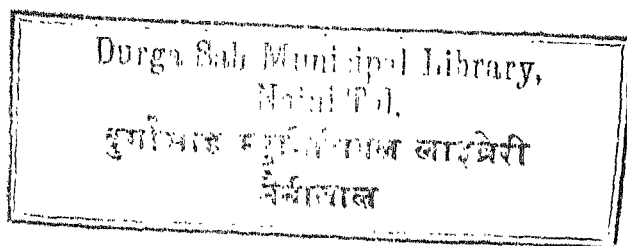 Durga Sah Municipal Library,
Naini Tal.
दुर्गासाह म्युनिसिपल लाइब्रेरी
नैनीताल